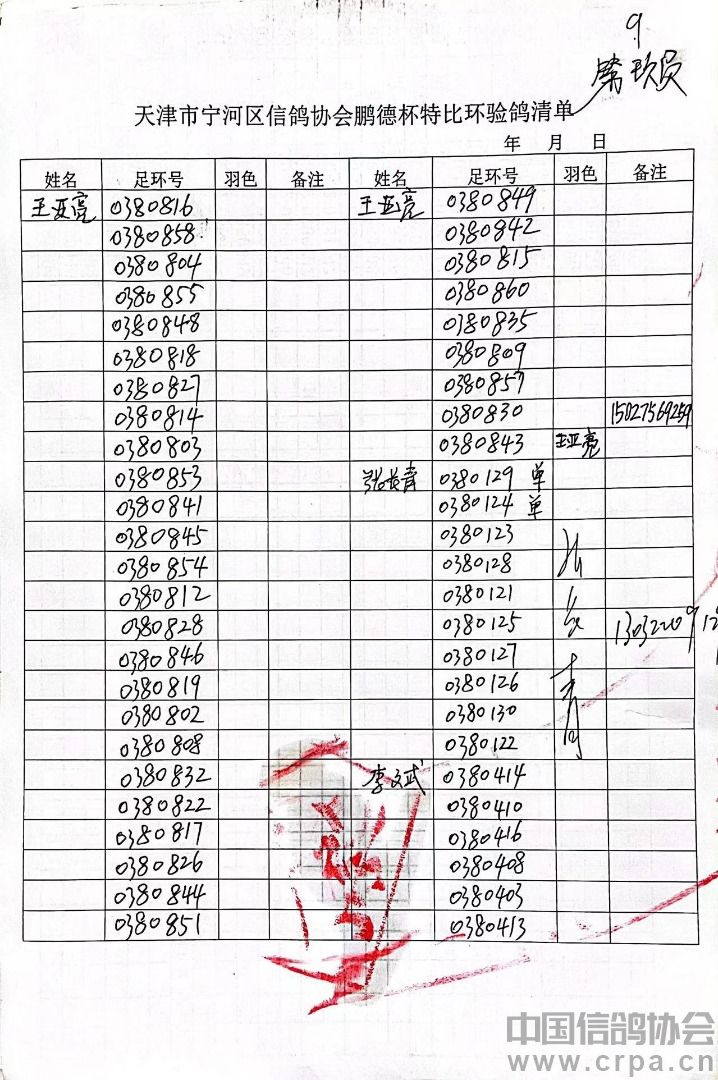 9
天津市宁河区信鸽协会鹏德杯特比环验鸽清单
年 月 日
姓名 足环号 羽色 备注 姓名 足环号 羽色 备注
王亚亮 0380816 王亚亮 0380849
0380858 0380842
0380804 0380815
0380855 0380860
0380848 0380835
0380818 0380809
0380827 0380857
0380814 0380830 15027569259
0380803 0380843 王亚亮
0380853 张长青 0380129 单
0380841 0380124 单
0380845 0380123
0380854 0380128
0380812 0380121
0380828 0380125
0380846 0380127
0380819 0380126
0380802 0380130
0380808 0380122
0380832 李文武 0380414
0380822 0380410
0380817 0380416
0380826 0380408
0380844 0380403
0380851 0380413
中国信鸽协会
www.crpa.cn